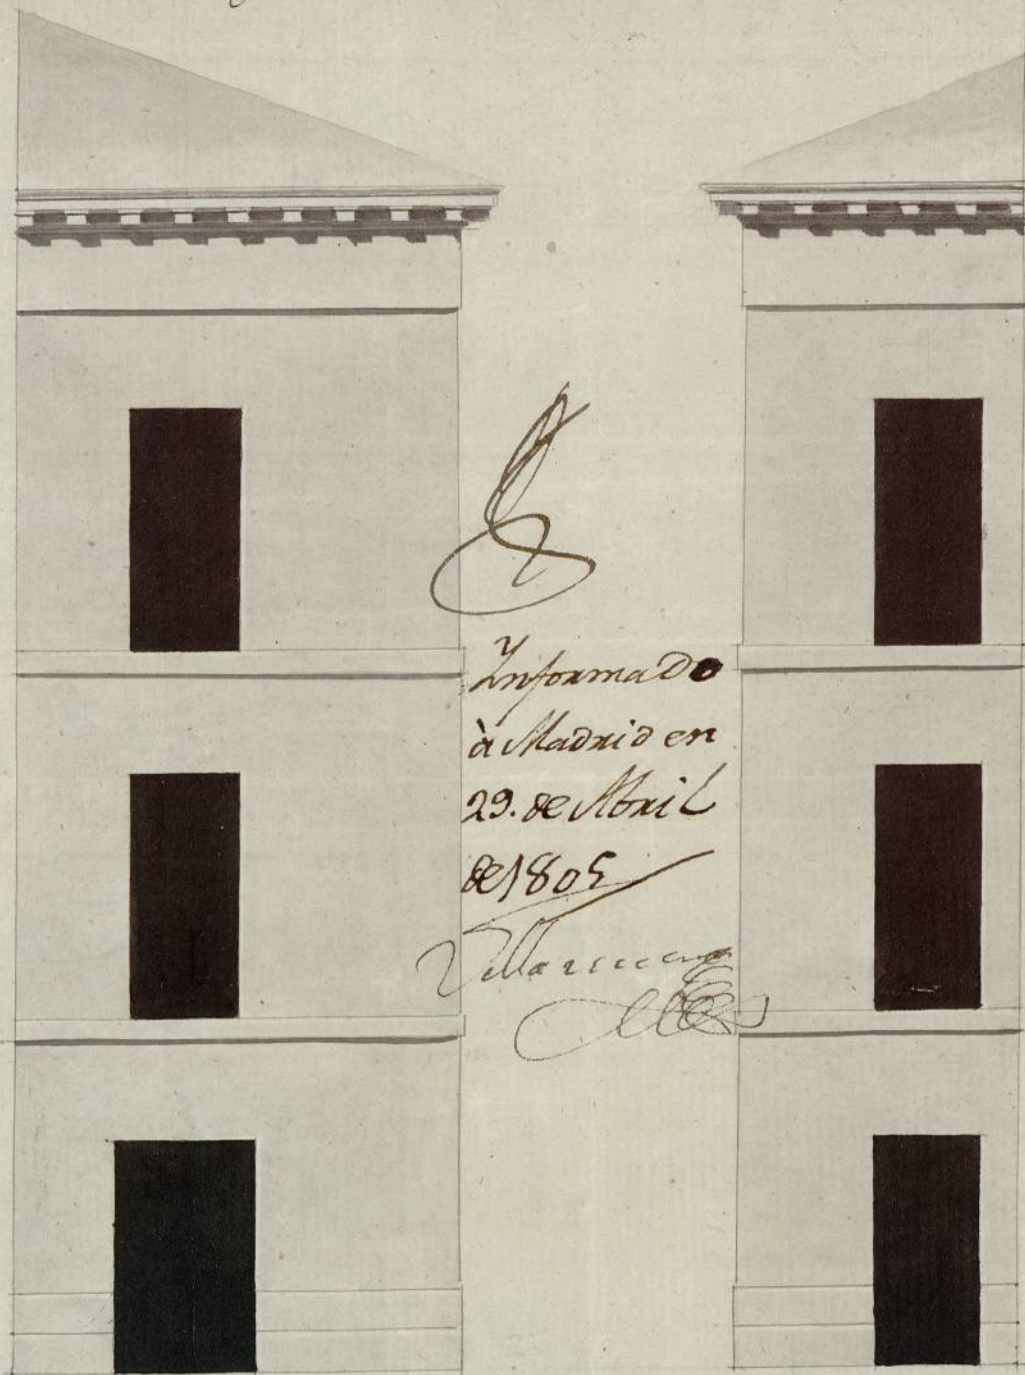 Informado
à Madrid en
29. de Abril
de 1805
Villanueva